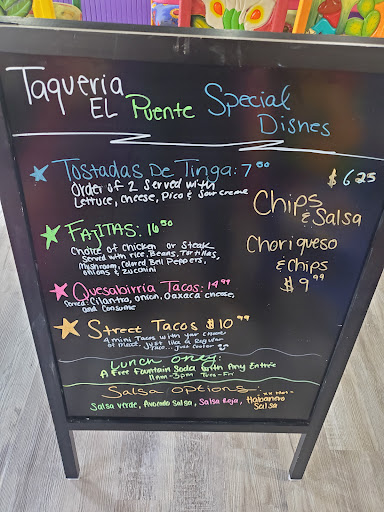 Taqueria
EL Puente Special
Dishes
Tostadas De Tinga: 7⁵⁰
Order of 2 Served with
Lettuce, Cheese, Pico & Sour creme
$6.25
Chips
& Salsa
FAJITAS: 16⁵⁰
Choice of Chicken or Steak
Served with rice, Beans, Tortillas,
Mushroom, Colored Bell Peppers,
onions & Zucchini
Choriqueso
& Chips
$9⁹⁹
Quesabirria Tacos: 14⁹⁹
Served: Cilantro, onion, Oaxaca cheese,
and Consume
Street Tacos $10⁹⁹
4 mini Tacos with your Choice
of Meat. Just like a Regular
Taco... Just Cuter
Lunch only:
A Free Fountain Soda with Any Entrée
11am-3pm Tues-Fri
Salsa options:
Salsa verde, Avocado Salsa, Salsa Roja, Habanero
Salsa